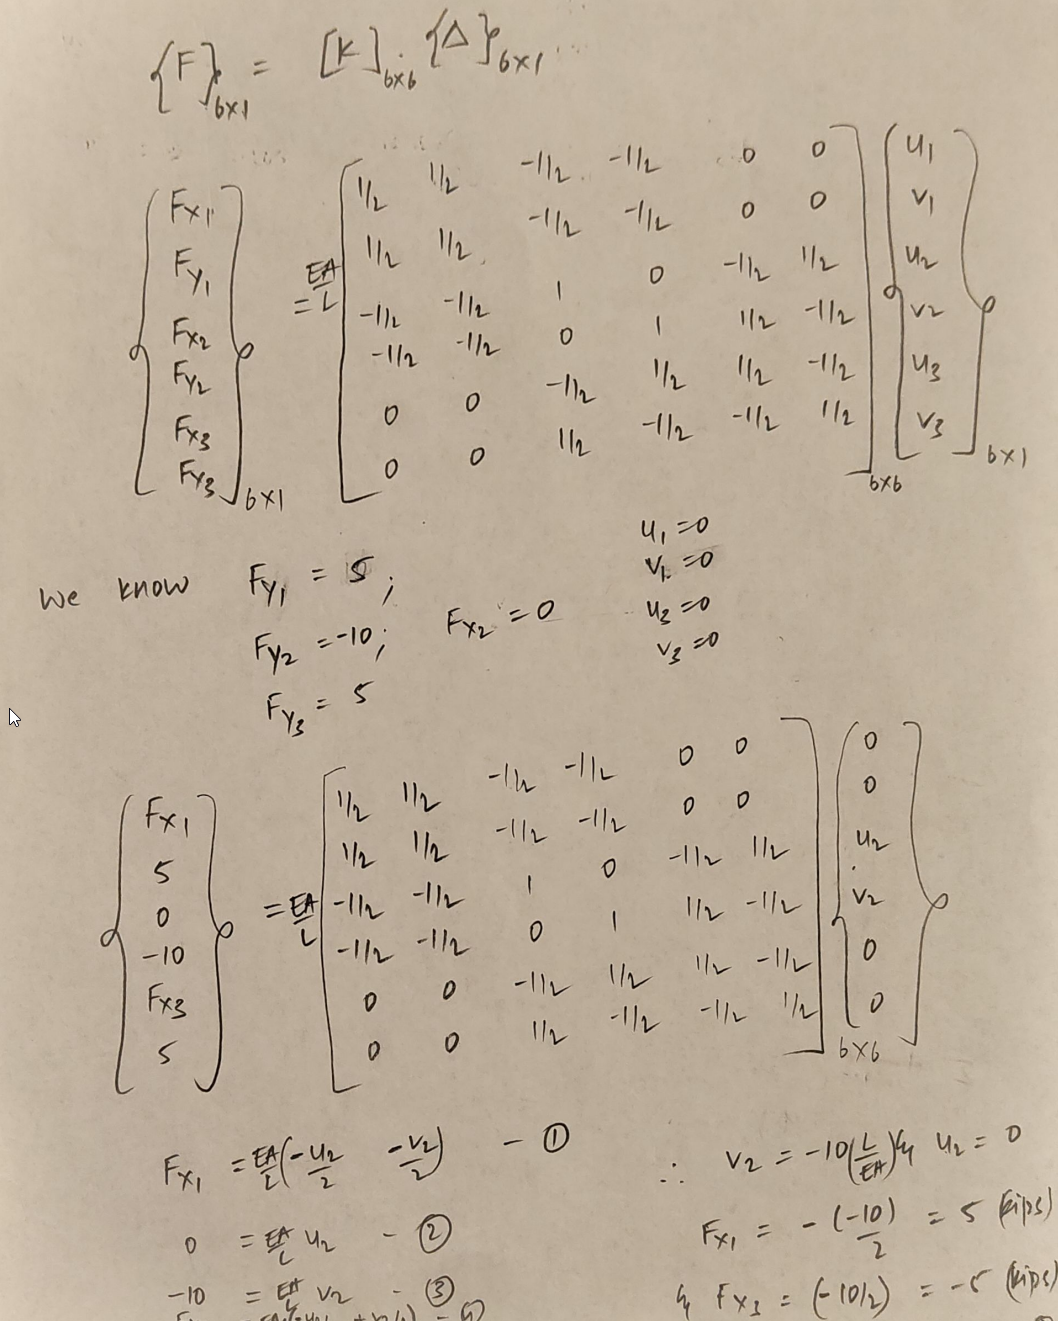 {F}6x1 = [K]6x6 · {Δ}6x1
{Fx1 Fy1 Fx2 Fy2 Fx3 Fy3}6x1 = EA/L [
1/2 1/2 -1/2 -1/2 0 0
1/2 1/2 -1/2 -1/2 0 0
-1/2 -1/2 1 0 -1/2 1/2
-1/2 -1/2 0 1 1/2 -1/2
0 0 -1/2 1/2 1/2 -1/2
0 0 1/2 -1/2 -1/2 1/2
]6x6 {u1 v1 u2 v2 u3 v3}6x1
We know Fy1 = 5;
Fy2 = -10; Fx2 = 0
Fy3 = 5
u1 = 0
v1 = 0
u3 = 0
v3 = 0
{Fx1 5 0 -10 Fx3 5} = EA/L [
1/2 1/2 -1/2 -1/2 0 0
1/2 1/2 -1/2 -1/2 0 0
-1/2 -1/2 1 0 -1/2 1/2
-1/2 -1/2 0 1 1/2 -1/2
0 0 -1/2 1/2 1/2 -1/2
0 0 1/2 -1/2 -1/2 1/2
]6x6 {0 0 u2 v2 0 0}
Fx1 = EA/L (-u2/2 -v2/2) - ①
0 = EA/L u2 - ②
-10 = EA/L v2 - ③
∴ v2 = -10(L/EA) & u2 = 0
Fx1 = -(-10)/2 = 5 (kips)
& Fx3 = (-10/2) = -5 (kips)